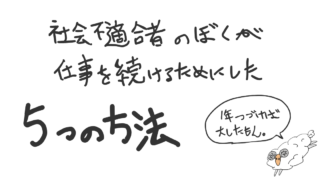 社会不適合者のぼくが
仕事を続けるためにした
5つの方法
1年つづけば
大したもん。